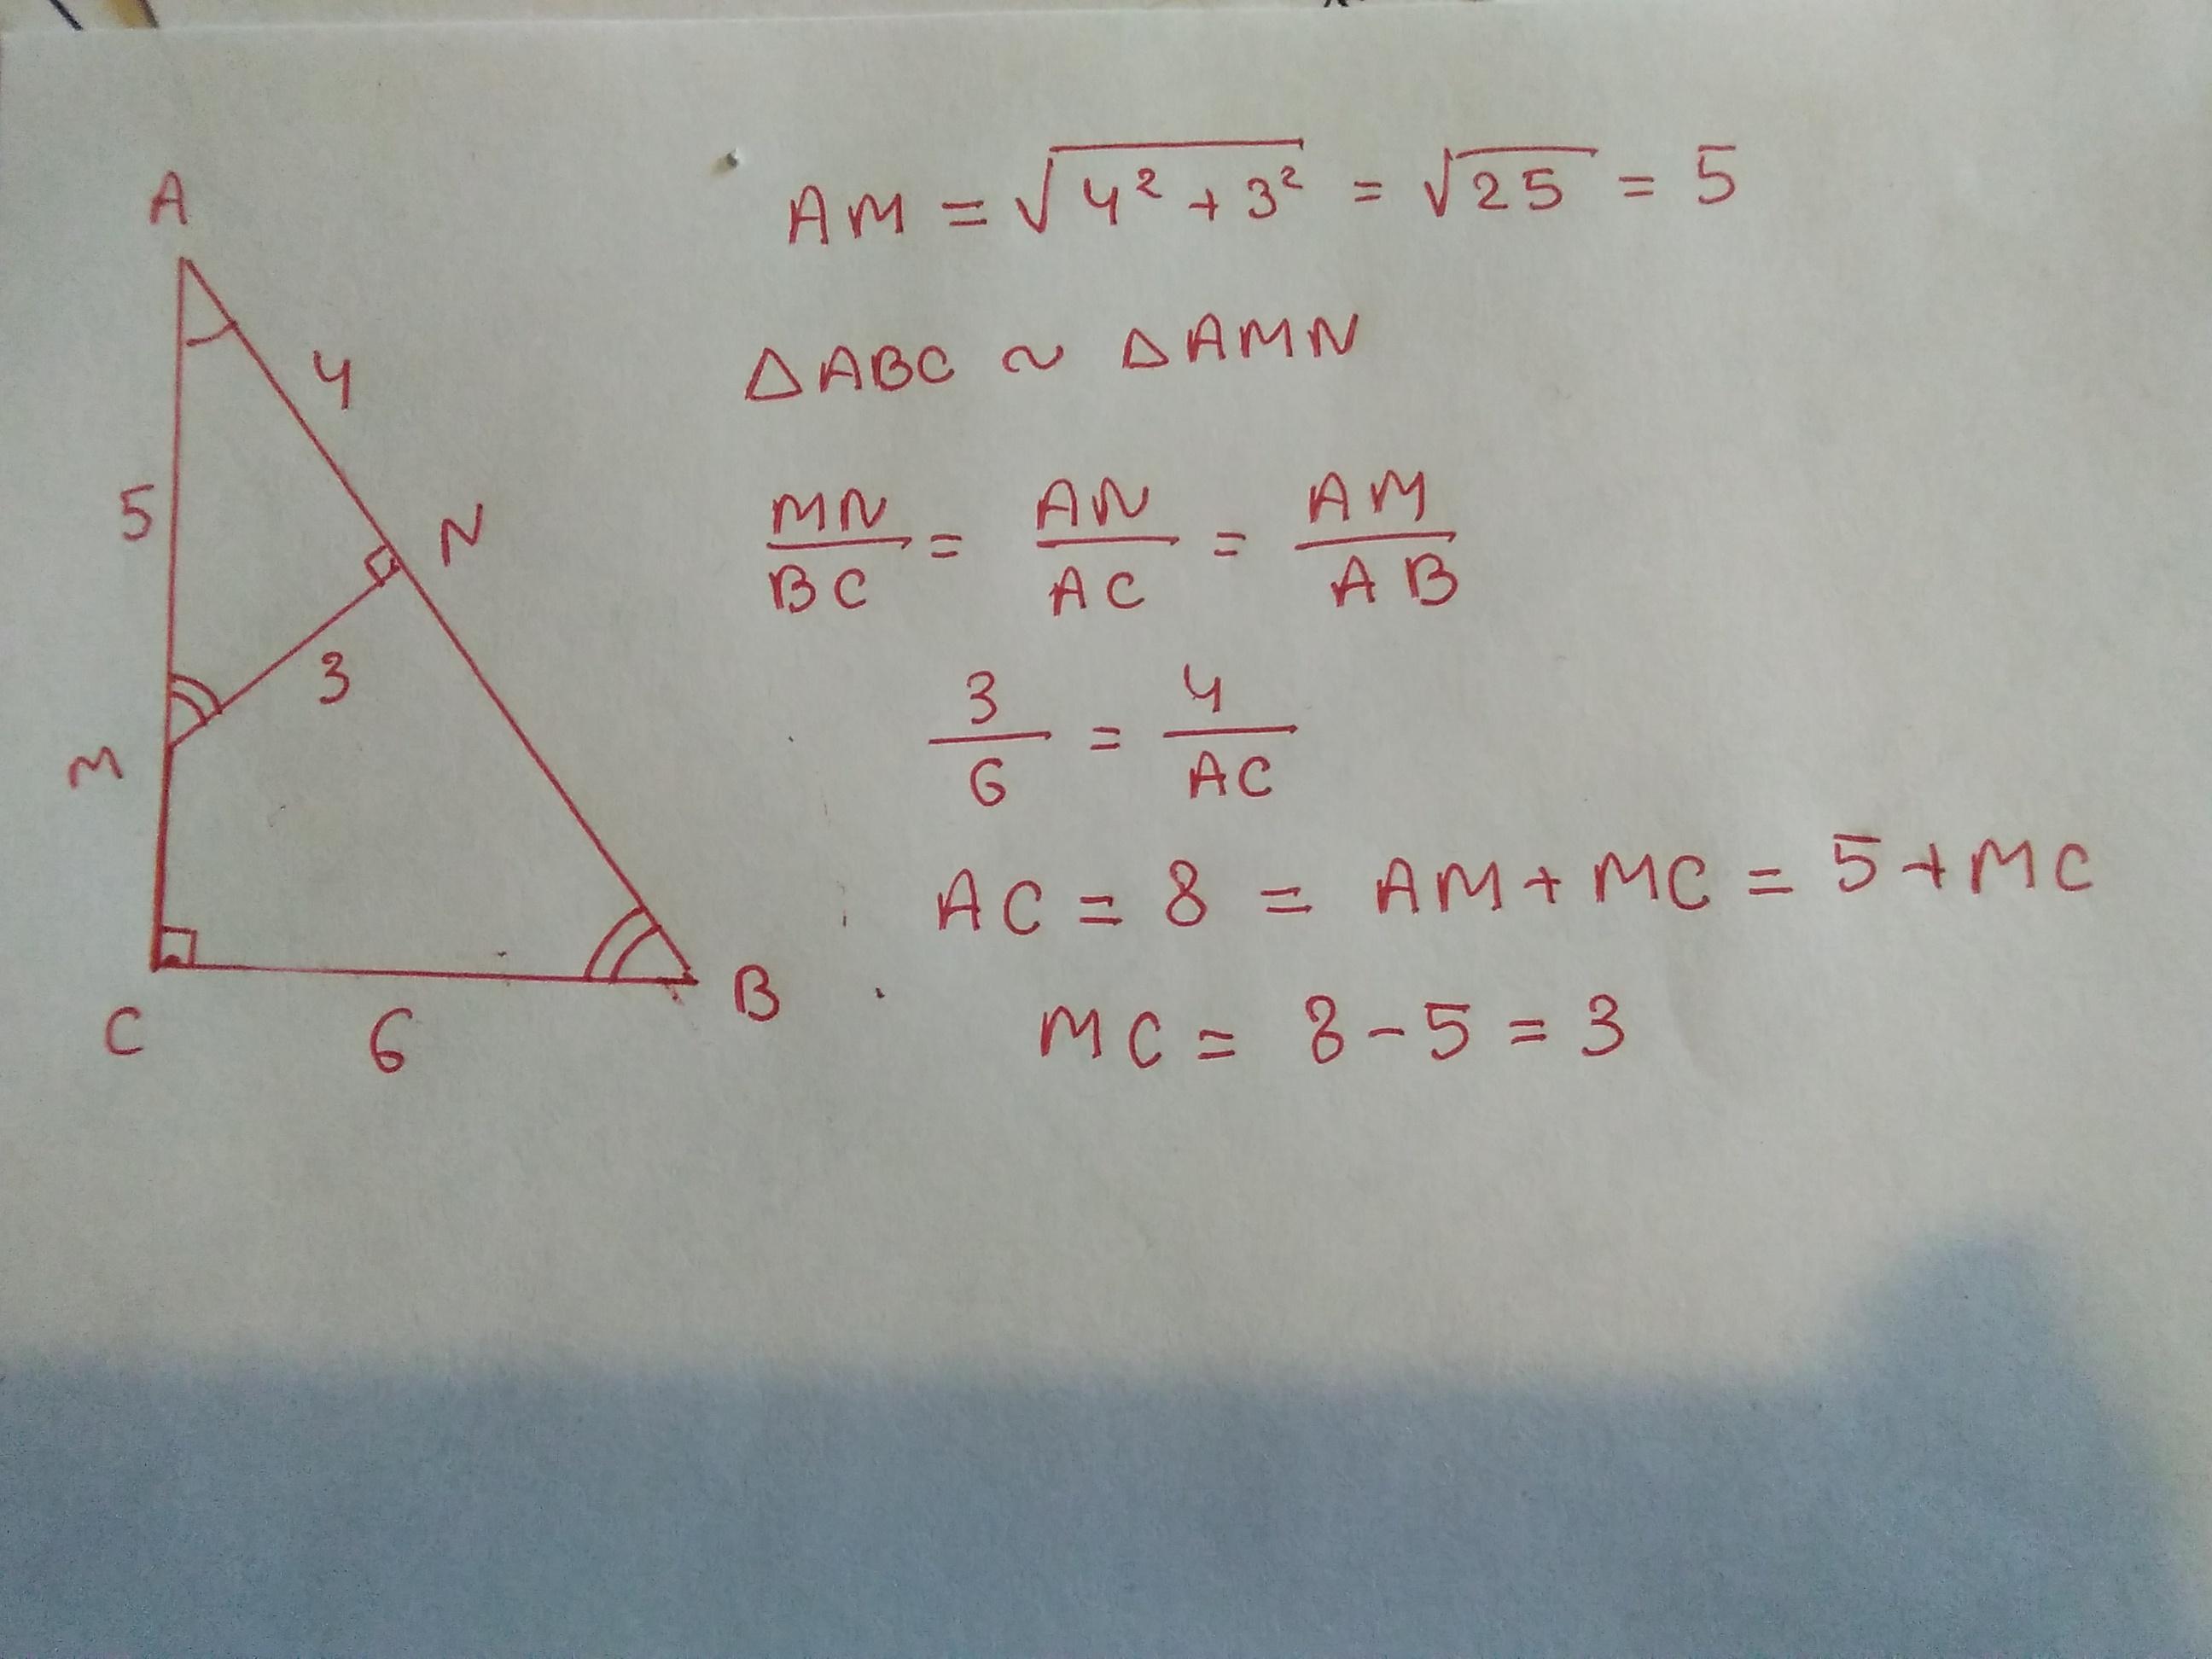 A
4
5
N
3
M
C
6
B
AM = √4² + 3² = √25 = 5
△ABC ~ △AMN
MN/BC = AN/AC = AM/AB
3/6 = 4/AC
AC = 8 = AM + MC = 5 + MC
MC = 8 - 5 = 3